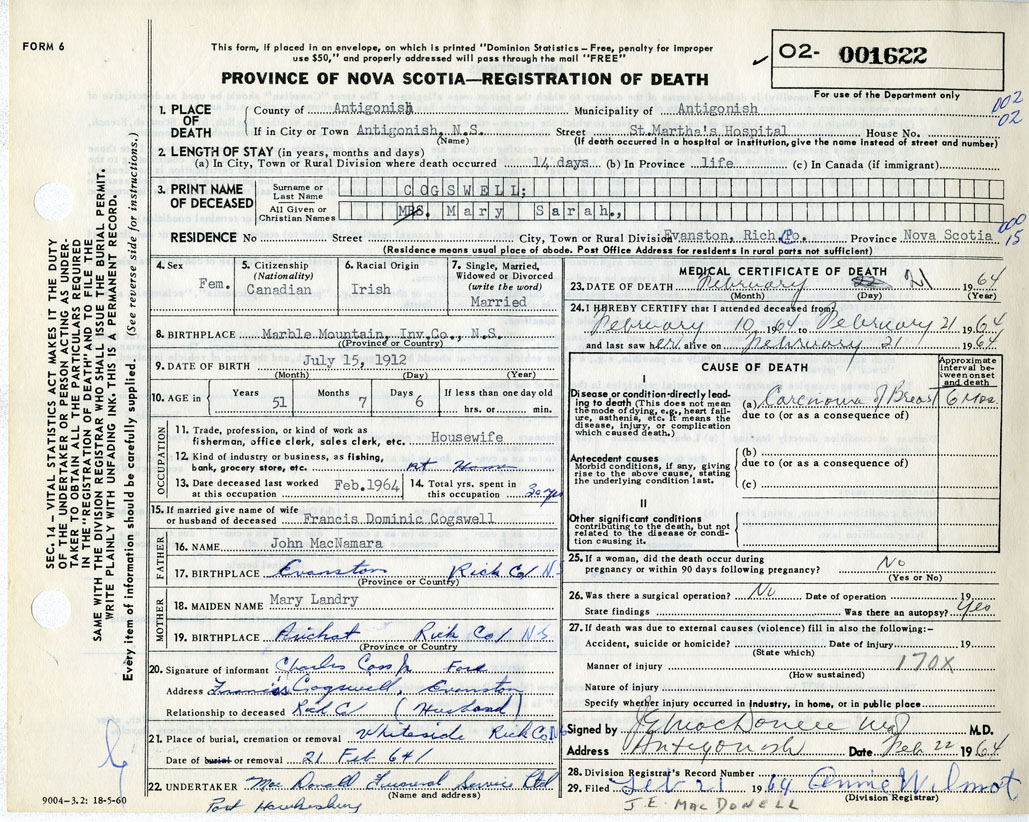 FORM 6
This form, if placed in an envelope, on which is printed "Dominion Statistics – Free, penalty for improper
use $50," and properly addressed will pass through the mail "FREE"
PROVINCE OF NOVA SCOTIA—REGISTRATION OF DEATH
02- 001622
For use of the Department only
002
02
SEC. 14 – VITAL STATISTICS ACT MAKES IT THE DUTY
OF THE UNDERTAKER OR PERSON ACTING AS UNDER-
TAKER TO OBTAIN ALL THE PARTICULARS REQUIRED
IN THE "REGISTRATION OF DEATH" AND TO FILE THE
SAME WITH THE DIVISION REGISTRAR WHO SHALL ISSUE THE BURIAL PERMIT.
WRITE PLAINLY WITH UNFADING INK. THIS IS A PERMANENT RECORD.
Every item of information should be carefully supplied. (See reverse side for instructions.)
1. PLACE OF DEATH
County of Antigonish Municipality of Antigonish
If in City or Town Antigonish, N.S. Street St.Martha's Hospital House No.
(Name) (If death occurred in a hospital or institution, give the name instead of street and number)
2. LENGTH OF STAY (in years, months and days)
(a) In City, Town or Rural Division where death occurred 14 days (b) In Province life (c) In Canada (if immigrant)
3. PRINT NAME OF DECEASED
Surname or Last Name COGSWELL;
All Given or Christian Names MRS. Mary Sarah.,
000
15
RESIDENCE No Street City, Town or Rural Division Evanston, Rich.Co. Province Nova Scotia
(Residence means usual place of abode. Post Office Address for residents in rural parts not sufficient)
4. Sex Fem.
5. Citizenship (Nationality) Canadian
6. Racial Origin Irish
7. Single, Married, Widowed or Divorced (write the word) Married
8. BIRTHPLACE Marble Mountain, Inv.Co., N.S.
(Province or County)
9. DATE OF BIRTH July 15, 1912
(Month) (Day) (Year)
10. AGE in Years 51 Months 7 Days 6 If less than one day old hrs. or min.
OCCUPATION
11. Trade, profession, or kind of work as
fisherman, office clerk, sales clerk, etc. Housewife
12. Kind of industry or business, as fishing,
bank, grocery store, etc. at Home
13. Date deceased last worked at this occupation Feb.1964
14. Total yrs. spent in this occupation 30 yrs
15. If married give name of wife
or husband of deceased Francis Dominic Cogswell
FATHER
16. NAME John MacNamara
17. BIRTHPLACE Evanston Rich Co/ N.S.
(Province or County)
MOTHER
18. MAIDEN NAME Mary Landry
19. BIRTHPLACE Arichat Rich Co/ N.S.
(Province or County
20. Signature of informant Charles
Address Francis Cogswell, Evanston
Relationship to deceased Rich C/ (Husband)
21. Place of burial, cremation or removal Whiteside Rich Co N.S
Date of burial or removal 21 Feb 64/
22. UNDERTAKER Mac Donald Funeral Service Ltd
(Name and address)
Port Hawkesbury
9004-3.2: 18-5-60
MEDICAL CERTIFICATE OF DEATH
23. DATE OF DEATH February 21 1964
(Month) (Day) (Year)
24. I HEREBY CERTIFY that I attended deceased from
February 10 1964 to February 21 1964
and last saw her alive on February 21 1964
CAUSE OF DEATH
Approximate interval between onset and death
I
Disease or condition directly leading to death (This does not mean the mode of dying, e.g., heart failure, asthenia, etc. It means the disease, injury, or complication which caused death.)
(a) Carcinoma of Breast 6 Mos.
due to (or as a consequence of)
Antecedent causes
Morbid conditions, if any, giving rise to the above cause, stating the underlying condition last.
(b)
due to (or as a consequence of)
(c)
II
Other significant conditions
contributing to the death, but not related to the disease or condition causing it.
25. If a woman, did the death occur during
pregnancy or within 90 days following pregnancy? No
(Yes or No)
26. Was there a surgical operation? No Date of operation 19
State findings Was there an autopsy? Yes
27. If death was due to external causes (violence) fill in also the following:–
Accident, suicide or homicide? Date of injury 19
(State which)
Manner of injury 170X
(How sustained)
Nature of injury
Specify whether injury occurred in industry, in home, or in public place
Signed by J E MacDonell M.D.
Address Antigonish Date Feb 22 1964
28. Division Registrar's Record Number
29. Filed Feb 21 1964 Annie Wilmot
(Division Registrar)
J.E. MACDONELL